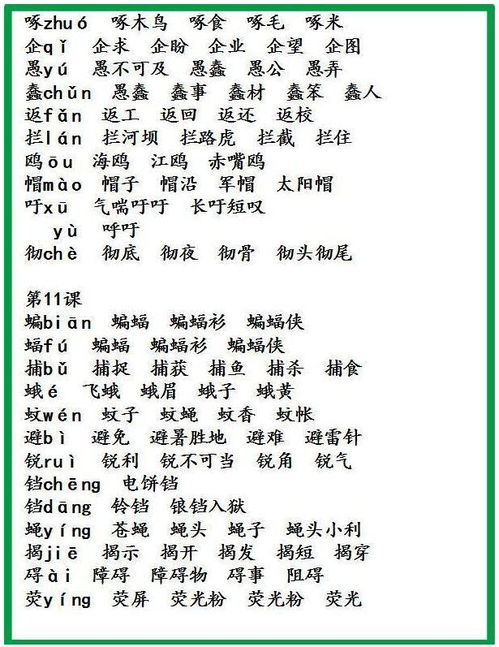 啄zhuó 啄木鸟 啄食 啄毛 啄米
企qǐ 企求 企盼 企业 企望 企图
愚yú 愚不可及 愚蠢 愚公 愚弄
蠢chǔn 愚蠢 蠢事 蠢材 蠢笨 蠢人
返fǎn 返工 返回 返还 返校
拦lán 拦河坝 拦路虎 拦截 拦住
鸥ōu 海鸥 江鸥 赤嘴鸥
帽mào 帽子 帽沿 军帽 太阳帽
吁xū 气喘吁吁 长吁短叹
yù 呼吁
彻chè 彻底 彻夜 彻骨 彻头彻尾
第11课
蝙biān 蝙蝠 蝙蝠衫 蝙蝠侠
蝠fú 蝙蝠 蝙蝠衫 蝙蝠侠
捕bǔ 捕捉 捕获 捕鱼 捕杀 捕食
蛾é 飞蛾 蛾眉 蛾子 蛾黄
蚊wén 蚊子 蚊蝇 蚊香 蚊帐
避bì 避免 避暑胜地 避难 避雷针
锐ruì 锐利 锐不可当 锐角 锐气
铛chēng 电饼铛
铛dāng 铃铛 锒铛入狱
蝇yíng 苍蝇 蝇头 蝇子 蝇头小利
揭jiē 揭示 揭开 揭发 揭短 揭穿
碍ài 障碍 障碍物 碍事 阻碍
荧yíng 荧屏 荧光粉 荧光粉 荧光